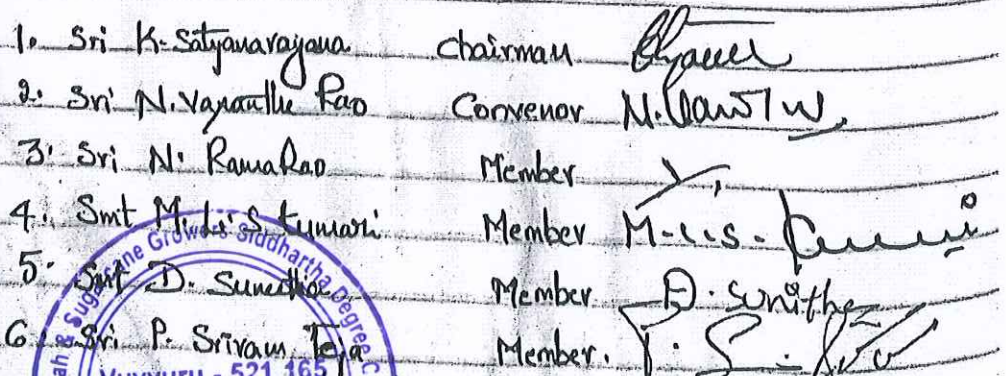 1. Sri K. Satyanarayana Chairman
2. Sri N. Vasantha Rao Convenor
3. Sri N. RamaRao Member
4. Smt M.L.S. Kumari Member M.L.S. Kumari
5. Smt D. Sunetha Member D. Sunitha
6. Sri P. Srivam Teja Member.
ah & Sugarcane Growers Siddhartha Degree C
Vuyyuru - 521 165